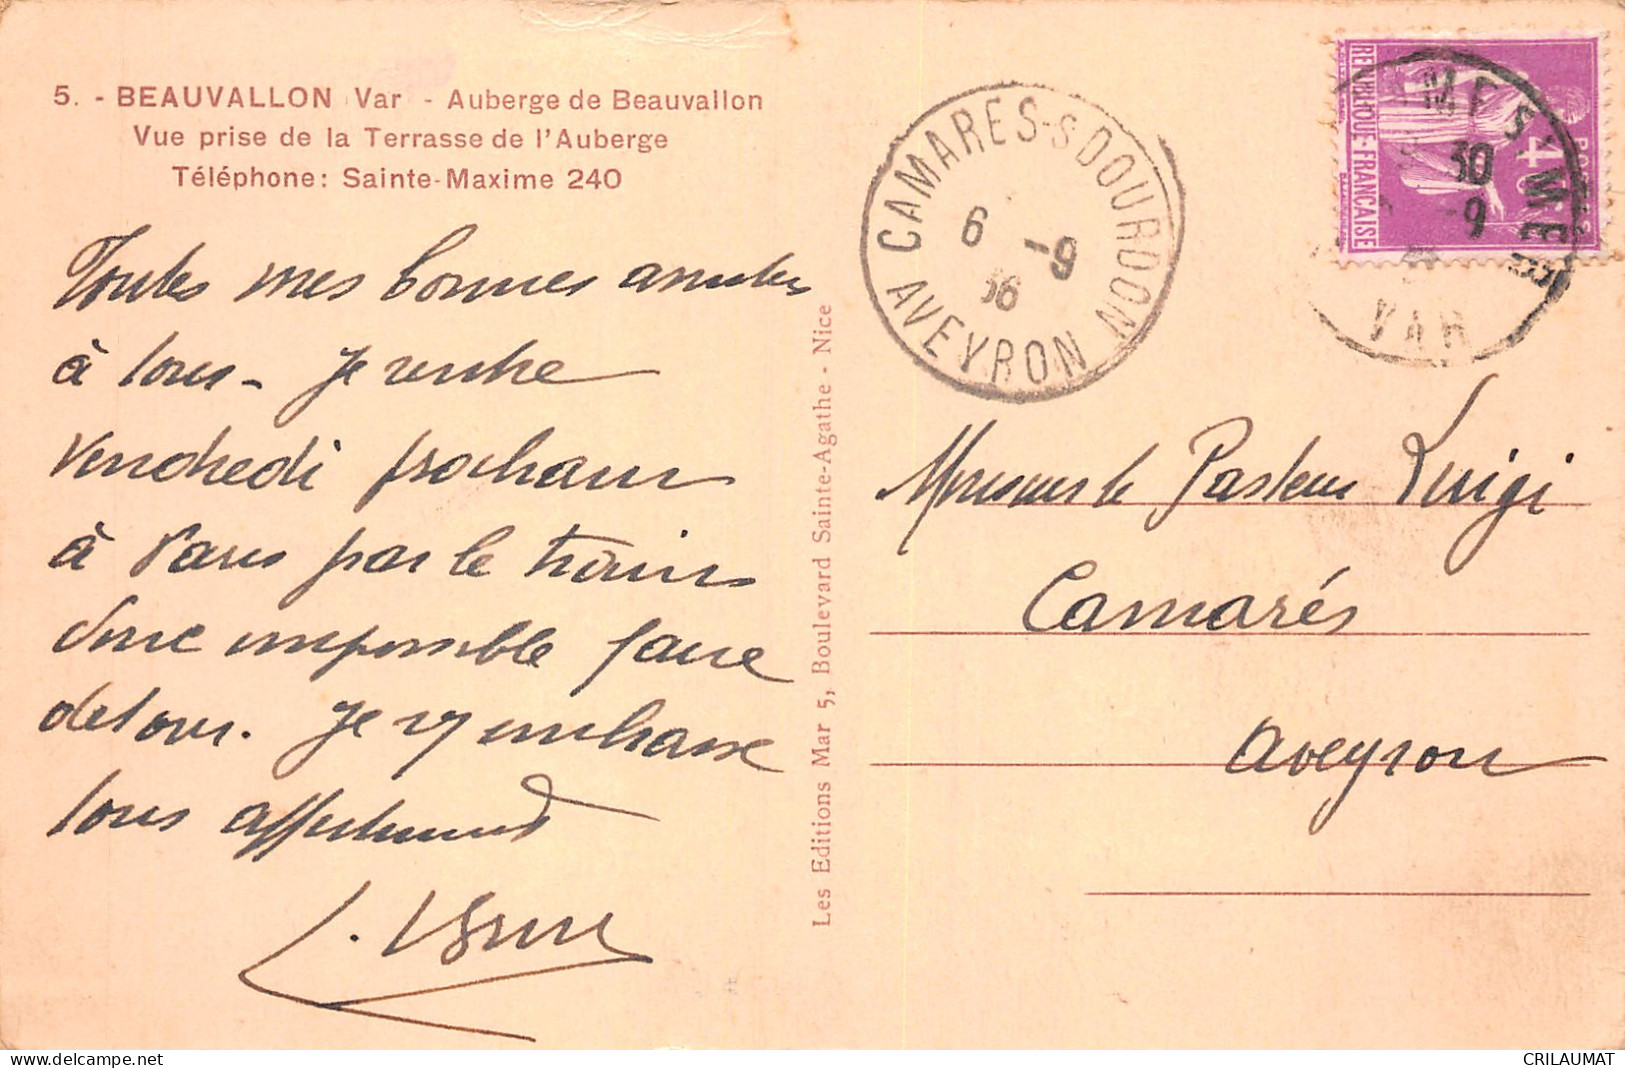 5. - BEAUVALLON Var - Auberge de Beauvallon
Vue prise de la Terrasse de l'Auberge
Téléphone: Sainte-Maxime 240
Toutes mes bonnes amitiés
à tous - Je rentre
vendredi prochain
à Paris par le train
donc impossible faire
detour. Je vs embrasse
tous affectueusement
Les Editions Mar 5, Boulevard Sainte-Agathe - Nice
CAMARES-S-DOURDON
6 -9
36
AVEYRON
REPUBLIQUE·FRANÇAISE
POSTES
40
30
-9
VAR
Monsieur le Pasteur Luigi
Camarés
Aveyron
CRILAUMAT
delcampe.net